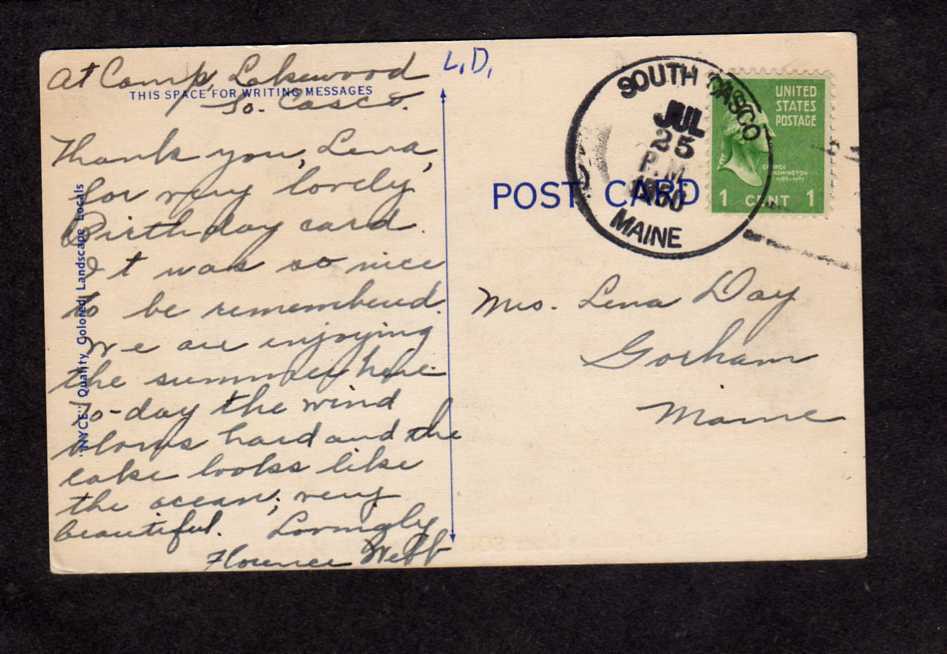 At Camp, Lakewood
So. Casco.
THIS SPACE FOR WRITING MESSAGES
Thank you, Lena,
for very lovely
Birthday card.
It was so nice
to be remembered.
We are enjoying
the summer here.
To-day the wind
blows hard and the
lake looks like
the ocean; very
beautiful. Lovingly
Florence Webb
NYCE Quality Colored Landscape Locals
L.D.
POST CARD
SOUTH CASCO
JUL
25
P.M.
1950
MAINE
UNITED
STATES
POSTAGE
GEORGE
WASHINGTON
1 CENT 1
Mrs. Lena Day
Gorham
Maine